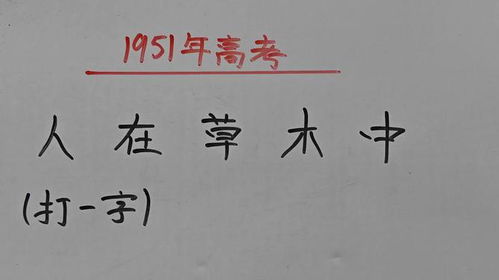 1951年高考
人在草木中
(打一字)